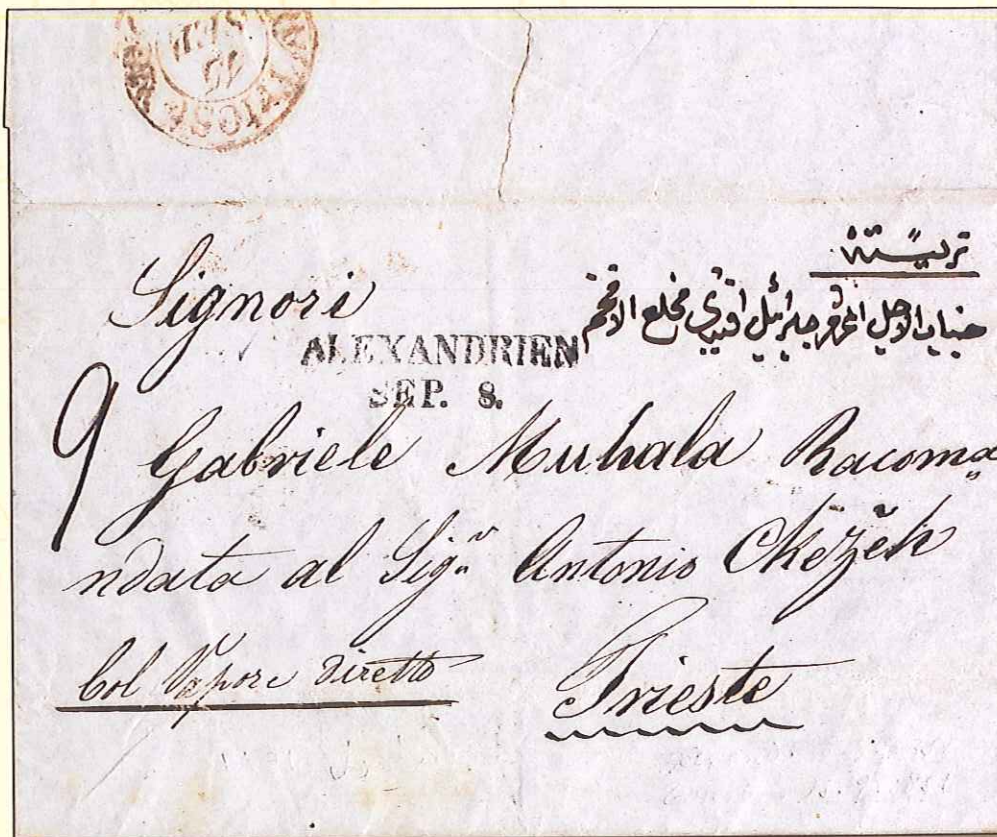 تريسته
جناب الاجل المحترم جبرائيل افندي مخلع الافخم
Signori
ALEXANDRIEN
SEP. 8.
9
Gabriele Muhala Racoma„
ndata al Sigr Antonio
Col Vapore Diretto
Trieste